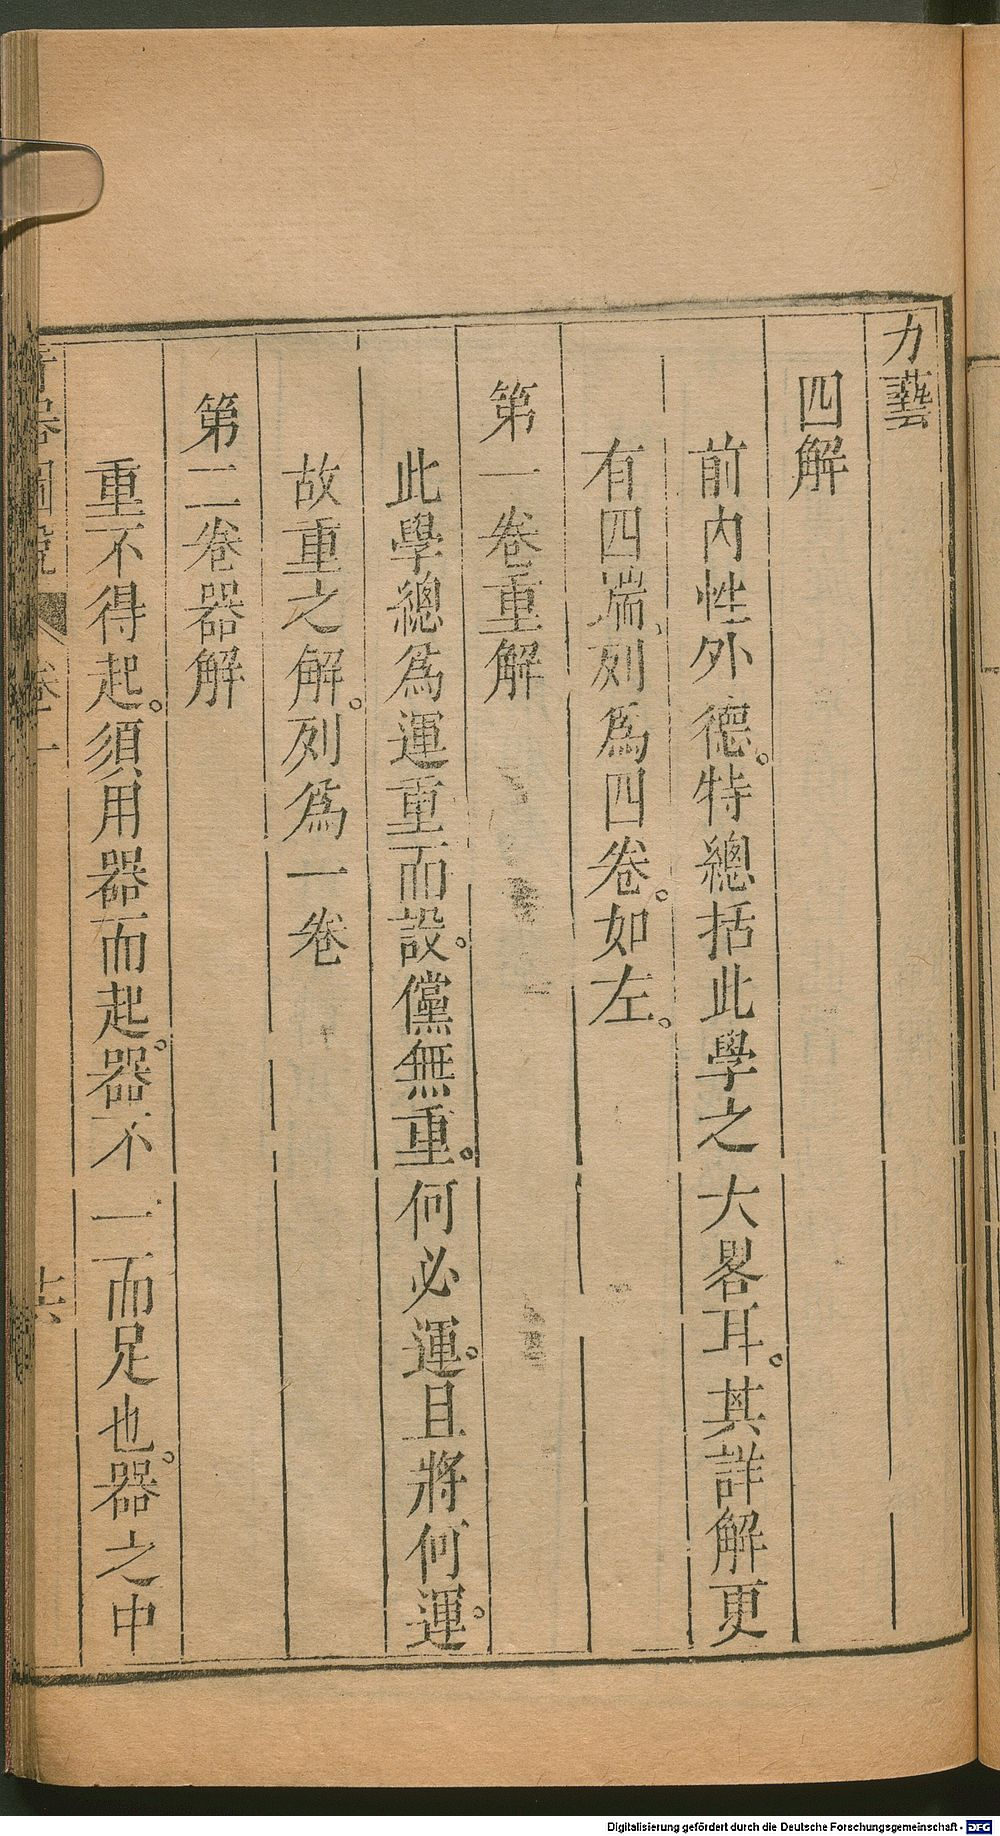 力藝
四解
前內性外德。特總括此學之大畧耳。其詳解更
有四端、列爲四卷。如左。
第一卷重解
此學總爲運重而設。儻無重。何必運。且將何運。
故重之解。列爲一卷
第二卷器解
重不得起。須用器而起。器不一而足也。器之中
奇器圖說 卷一 十六
Digitalisierung gefördert durch die Deutsche Forschungsgemeinschaft - DFG